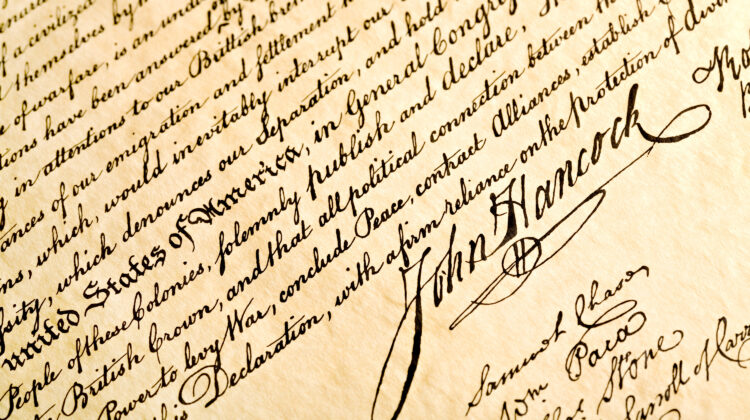 of a civilized
themselves by
of warfare, is an und
tions have been answered by
in attentions to our Brittish bre
ances of our emigration and ſettlement h
ns, which, would inevitably interrupt our
sity, which denounces our Separation, and hold
united States of America, in General Congre
People of these Colonies, ſolemnly publish and declare, Th
British Crown, and that all political connection between the
Power to levy War, conclude Peace, contract Alliances, establish C
this Declaration, with a firm reliance on the protection of divin
John Hancock
Samuel Chase
Wm Paca
Stone
Carroll of Carr